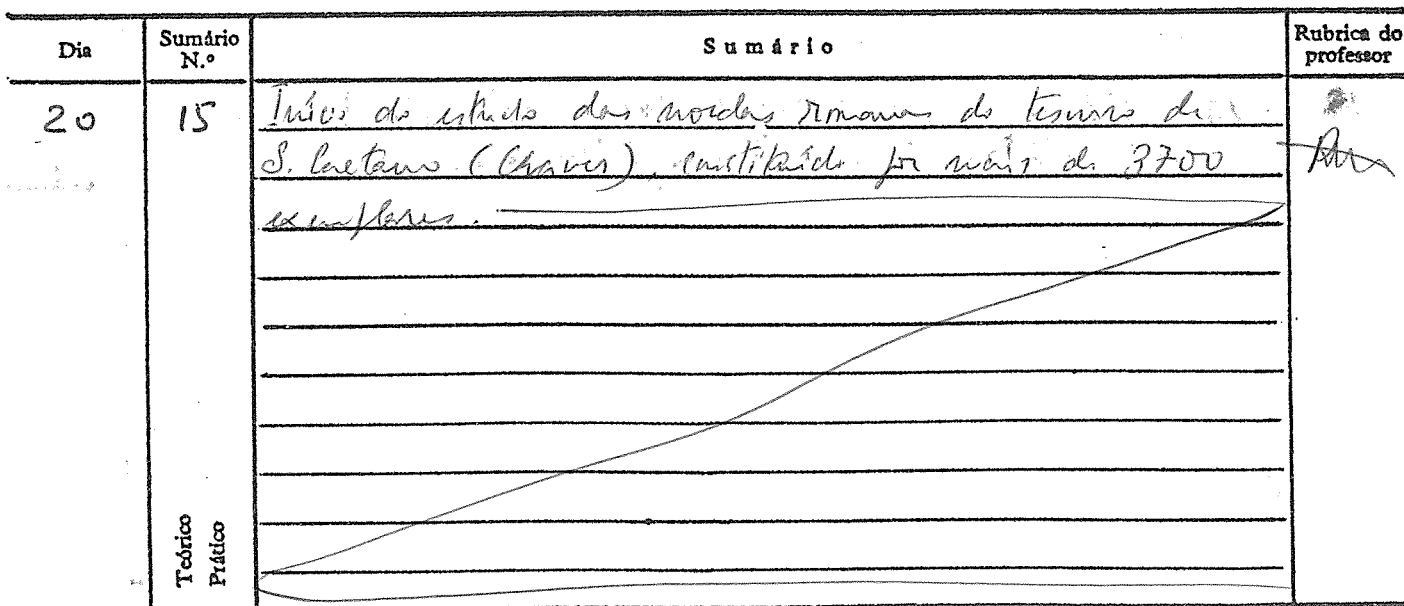 Dia Sumário N.º Sumário Rubrica do professor
20 15 Início do estudo das moedas romanas do tesouro de
S. Caetano (Chaves), constituído por mais de 3700
exemplares.
Teórico
Prático